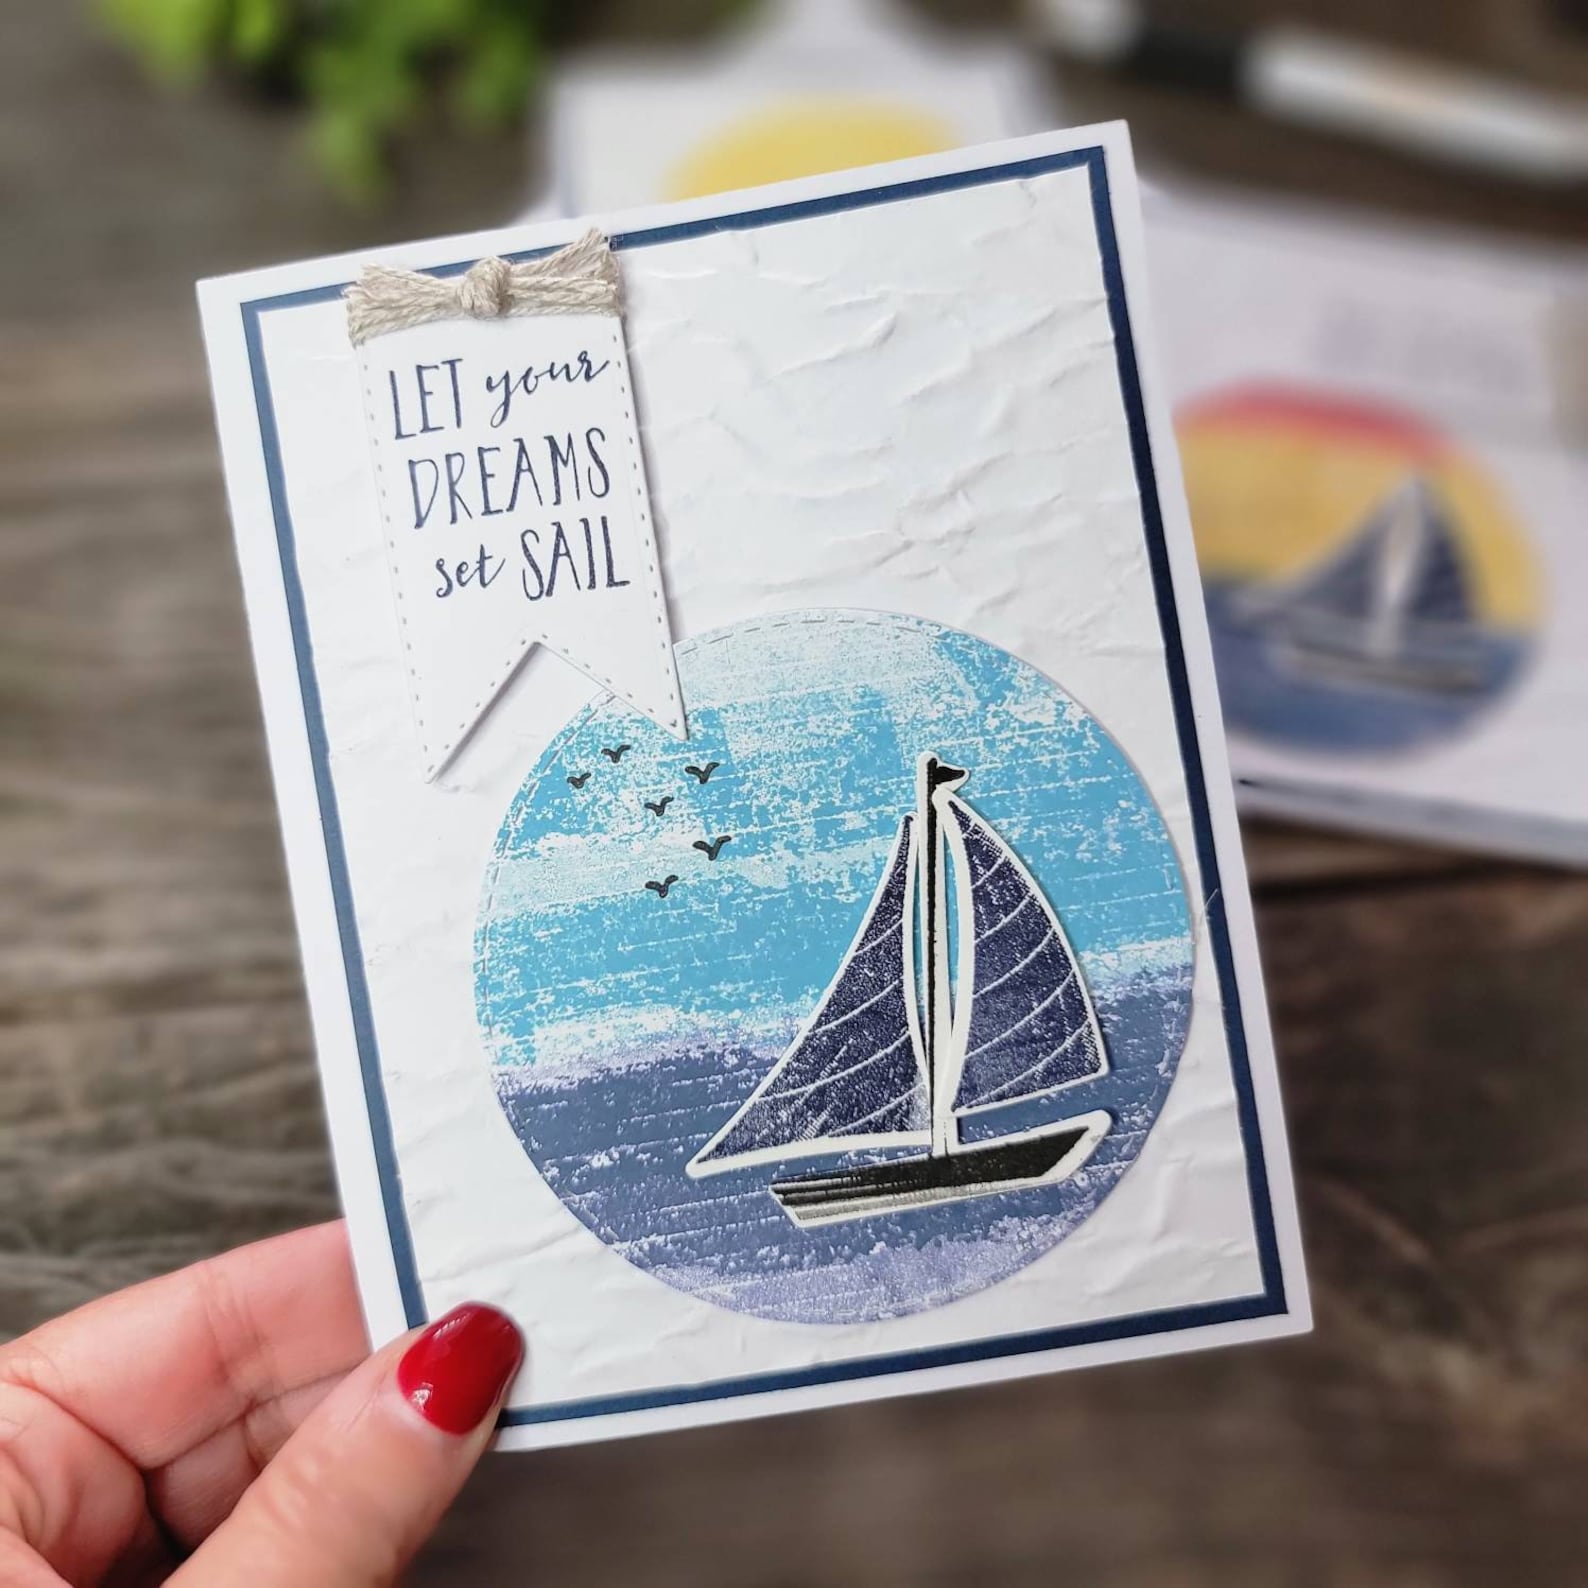 LET your
DREAMS
set SAIL